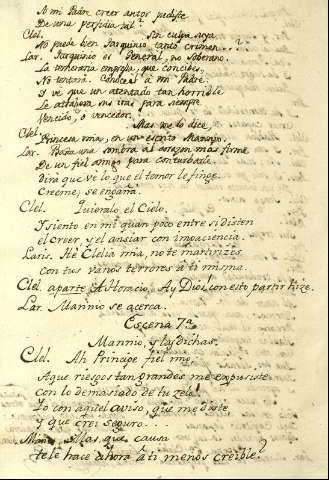 A mi Padre creer antor pudiste
De una perfidia vil
Clel. Sin culpa suya
No puede bien Tarquinio tanto crimen...
Lar. Tarquinio es General, no Soberano.
La temeraria empresa, que concibes,
No tentará. Conoce á mi Padre,
I ve que un atentado tan horrible
Le atrajera sus iras para siempre
Vencido, o vencedor.
Clel. Mas me lo dice,
Princesa mia, en un escrito Mannio.
Lar. Basta una sombra al corazon mas firme
De un fiel amigo para conturbarle.
Dirá que vé lo que el temor le finge.
Creeme, se engaña.
Clel. Quieralo el Cielo.
I siento en mi quan poco entre si disten
el creer, y el ansiar con impaciencia.
Laris. Hé Clelia mia, no te martirizes
con tus vanos terrores á ti misma.
Clel. aparte A Horacio, Ay Dios, con esto partir hize.
Lar. Mannio se acerca.
Escena 7ª
Mannio, y las dichas.
Clel. Ah Principe fiel mio,
A que riesgos tan grandes me expusiste
con lo demasiado de tu zelo!
Yo con aquel aviso, que me diste,
y que crei seguro...
Man. Mas, que causa
te le hace ahora á ti menos creible?